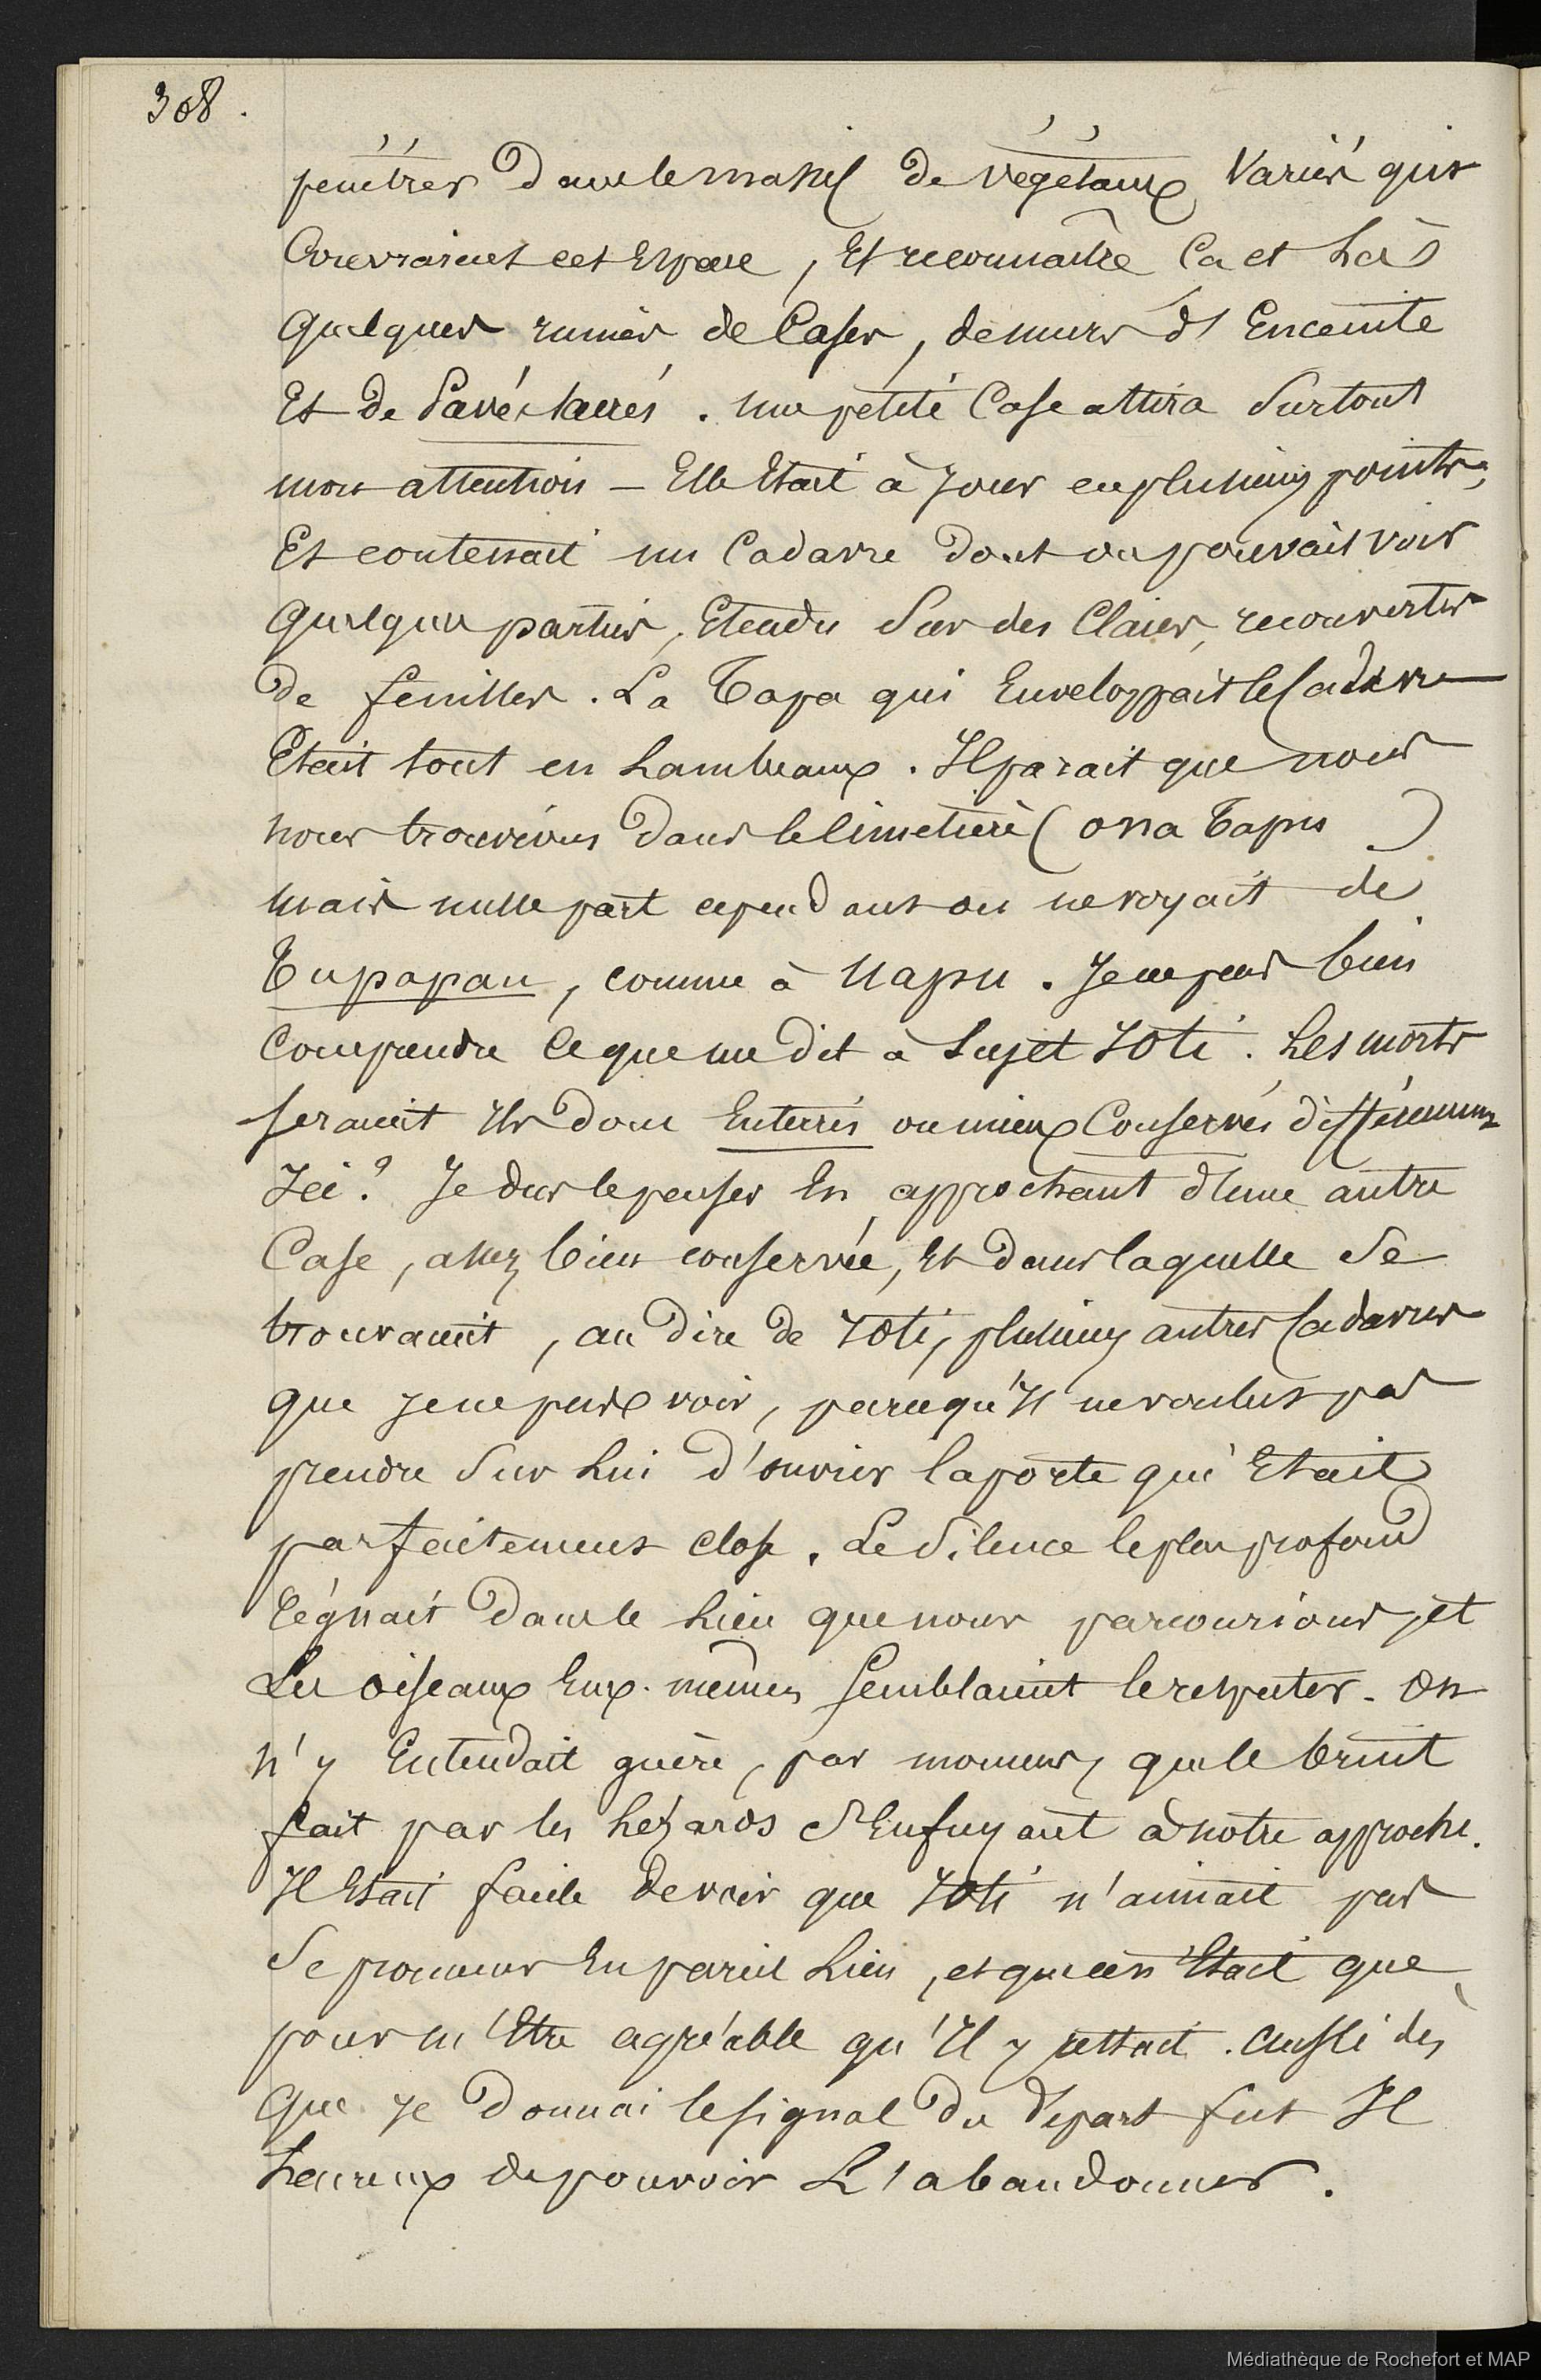 308.
pénétrer dans le massif de végétaux variés qui
couvraient cet Espace, Et reconnaître Ca et Là
quelques ruines de Cases, de murs d'Enceinte
Et de Pavés sacrés. une petite Case attira Surtout
mon attention _ Elle Etait à Jour en plusieurs points,
Et contenait un Cadavre dont on pouvait voir
quelques parties, Etendu Sur des Claies, recouvertes
de feuilles. La Tapa qui Enveloppait le Cadavre
Etait tout en Lambeaux. Il parait que nous
nous trouvions dans le Cimetière (ona Tapu )
mais nulle part cependant on ne voyait de
Tupapau, comme à Uapu. Je ne pus bien
Comprendre Ce que me dit à Sujet Toti. Les morts
seraient Ils donc Enterrés ou mieux Conservés différemment
Ici? Je dus le penser En approchant d'une autre
Case, assez bien conservée, Et dans laquelle Se
trouvaient, au dire de Toti, plusieurs autres Cadavres
que Je ne pus voir, parcequ'Il ne voulut pas
prendre Sur Lui d'ouvrir la porte qui Etait
parfaitement close. Le Silence le plus profond
régnait dans le Lieu que nous parcourions, et
Les oiseaux Eux-mêmes Semblaient le respecter. On
n'y Entendait guère, par moments, que le bruit
fait par les Lézards S'Enfuyant à notre approche.
Il Etait facile de voir que Toti n'aimait pas
Se promener En pareil Lieu, et que ce n'Etait que
pour m'Etre agréable qu'Il y restait. Aussi dès
que Je donnai le signal du départ fut Il
heureux de pouvoir L'abandonner.
Médiathèque de Rochefort et MAP